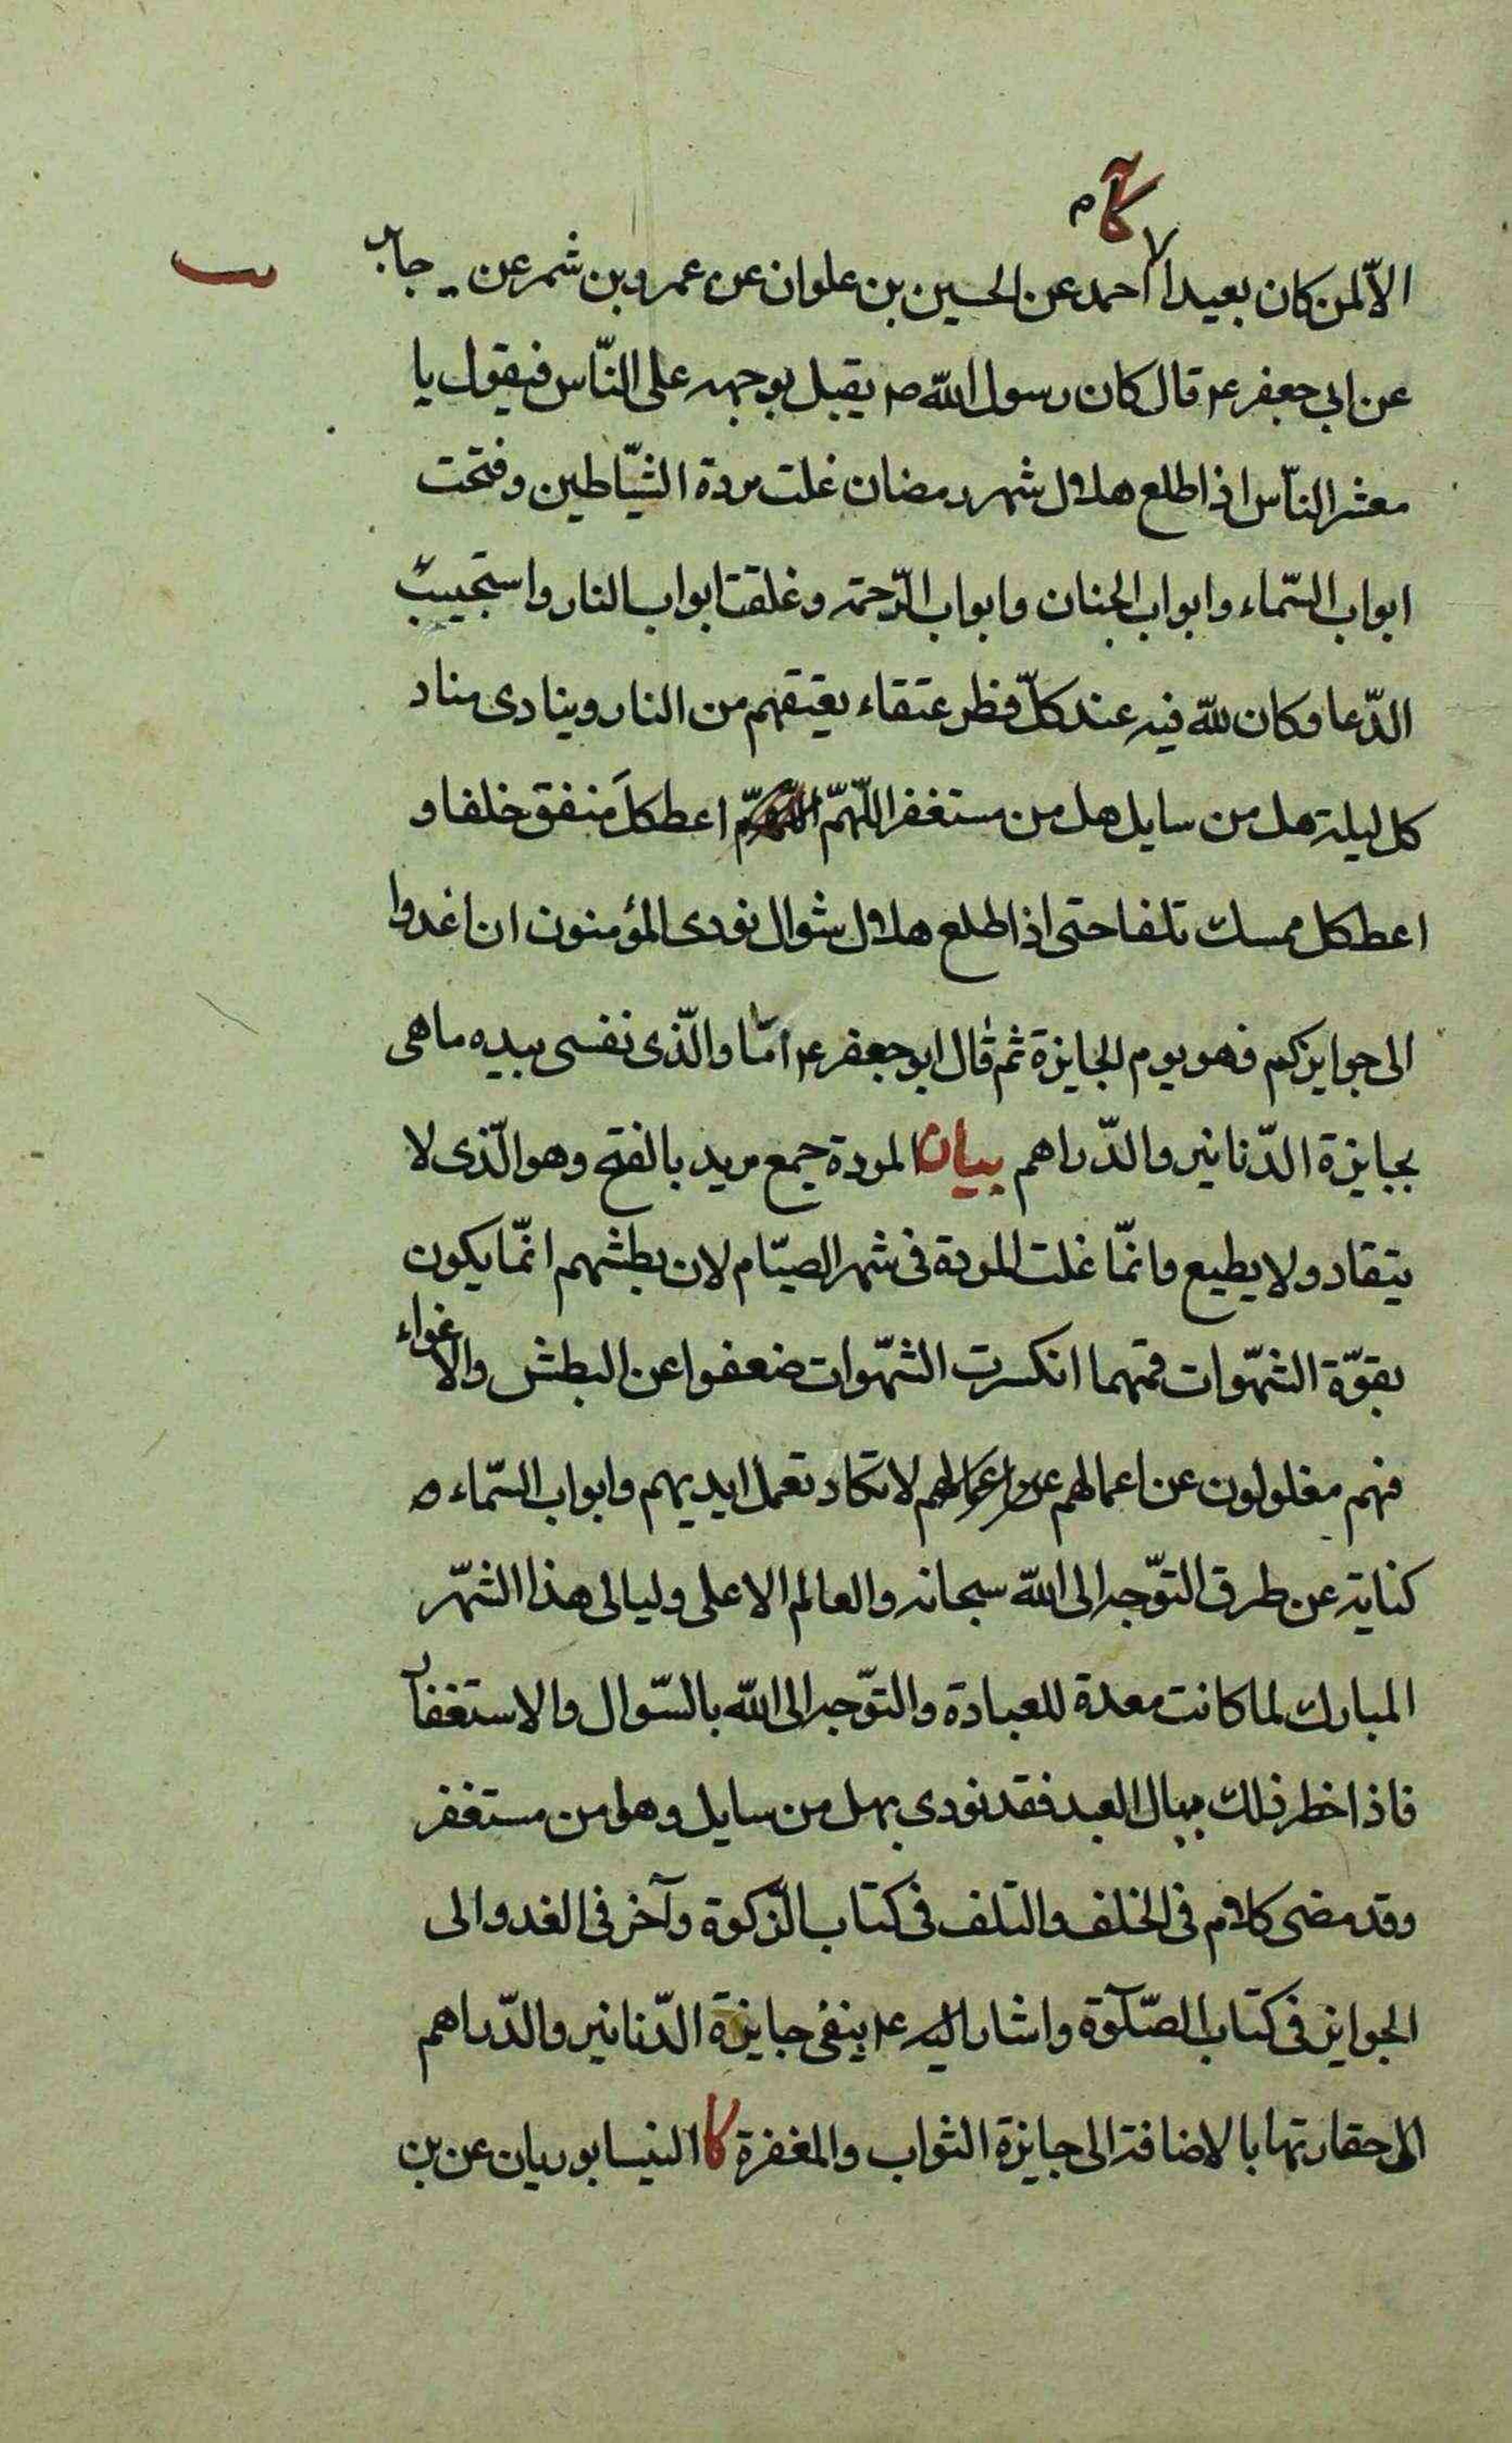 كا م
الاّ لمن كان بعيدا احمد عن الحسين بن علوان عن عمرو بن شمر عن جابر
عن ابي جعفر ع قال كان رسول اللّه ص يقبل بوجهه على النّاس فيقول يا
معشر النّاس اذا طلع هلال شهر رمضان غلت مردة الشّياطين وفتحت
ابواب السّماء وابواب الجنان وابواب الرّحمة وغلقت ابواب النار واستجيب
الدّعا وكان للّه فيه عند كلّ فطر عتقاء يعتقهم من النار وينادى مناد
كل ليلة هل من سايل هل من مستغفر اللّهمّ اعط كلّ منفق خلفا و
اعط كل ممسك تلفا حتى اذا طلع هلال شوال نودى المؤمنون ان اغدوا
الى جوايزكم فهو يوم الجايزة ثم قال ابو جعفر ع امّا والّذى نفسى بيده ما هى
بجايزة الدّنانير والدّراهم بيان المردة جمع مريد بالفتح وهو الّذى لا
ينقاد ولا يطيع وانمّا غلت المردة فى شهر الصيّام لان بطشهم انمّا يكون
بقوّة الشهّوات فمهما انكسرت الشهّوات ضعفوا عن البطش والاغواء
فهم مغلولون عن اعمالهم لا تكاد تعمل ايديهم وابواب السّماء
كناية عن طرق التوّجه الى اللّه سبحانه والعالم الاعلى وليالى هذا الشهّر
المبارك لما كانت معدة للعبادة والتوّجه الى اللّه بالسّوال والاستغفار
فاذا خطر ذلك ببال العبد فقد نودى بهل من سايل وهل من مستغفر
وقد مضى كلام فى الخلف والتلف فى كتاب الزّكوة وآخر فى الغدو الى
الجوايز فى كتاب الصّلوة واشار اليه ع بنفى جايزة الدّنانير والدّراهم
الى حقارتها بالاضافة الى جايزة الثواب والمغفرة كا النيسابوريان عن بن